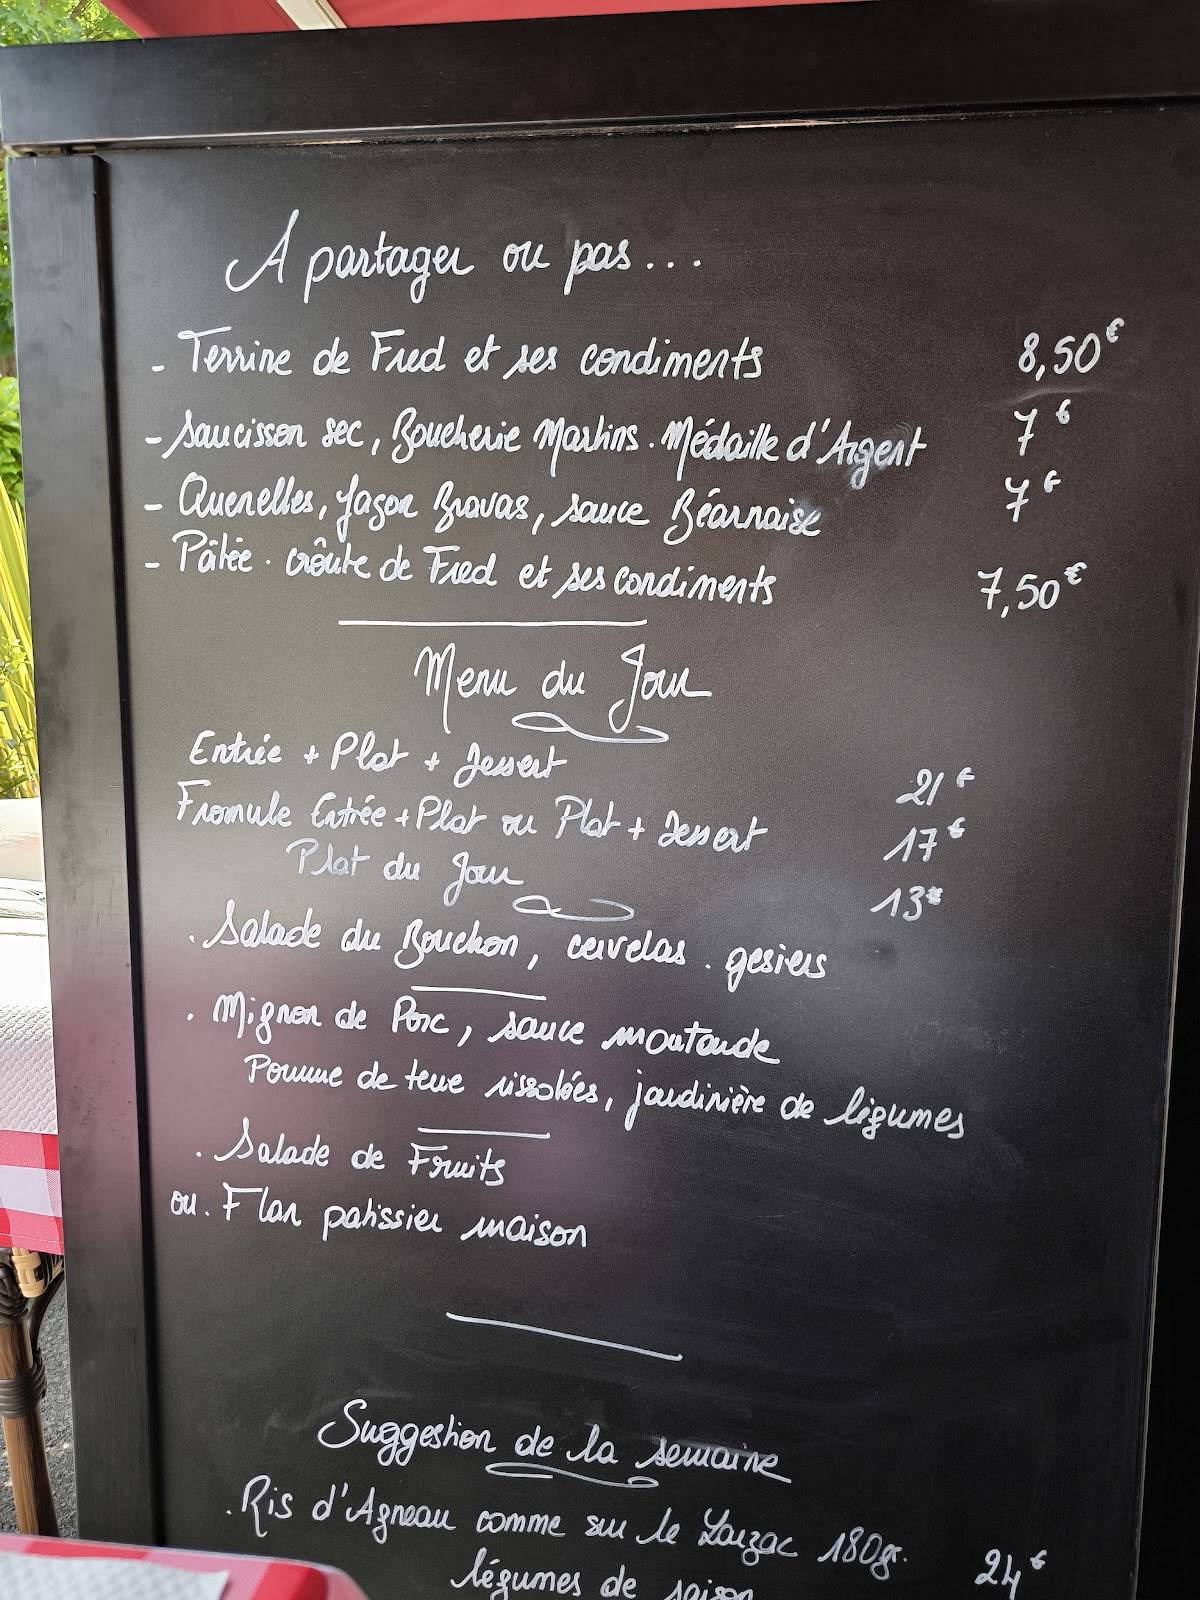 A partager ou pas...
- Terrine de Fred et ses condiments 8,50€
- Saucisson sec, Boucherie Martins. Médaille d'Argent 7€
- Quenelles, façon Bravas, sauce Béarnaise 7€
- Pâtée. croûte de Fred et ses condiments 7,50€
Menu du Jour
Entrée + Plat + Dessert 21€
Fromule Entrée + Plat ou Plat + Dessert 17€
Plat du Jour 13€
. Salade du Bouchon, cervelas. gesiers
. Mignon de Porc, sauce moutarde
Pomme de terre rissolées, jardinière de légumes
. Salade de Fruits
ou. Flan patissier maison
Suggestion de la semaine
. Ris d'Agneau comme sur le Larzac 180gr. 24€
légumes de saison